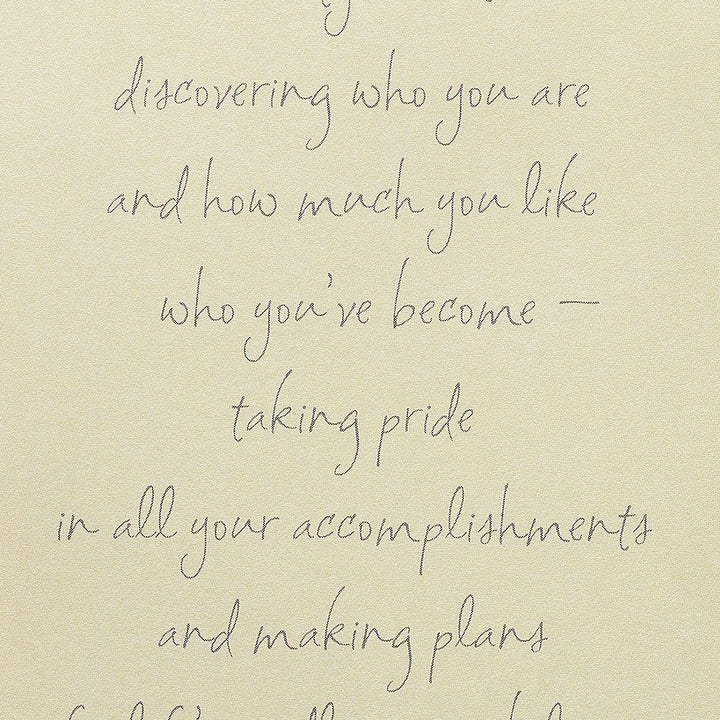 discovering who you are
and how much you like
who you've become —
taking pride
in all your accomplishments
and making plans